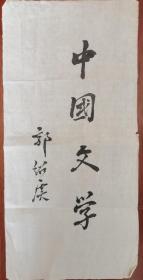 中國文学
郭绍虞